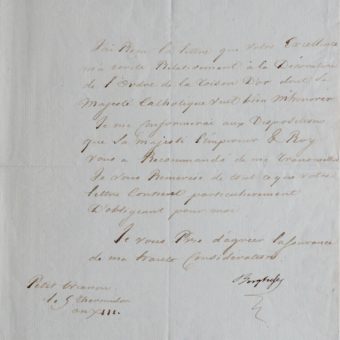 J'ai Reçu la lettre que votre Excellence
m'a écrite Relativement à la Décoration
de l'Ordre de la Toison D'or dont Sa
Majesté Catholique veut bien m'honorer
Je me conformerai aux Dispositions
que Sa Majesté l'Empereur & Roy
vous a Recommandé de me transmettre
Je vous Remercie de tout ce que votre
lettre Contient particulierement
D'obligeant pour moi.
Je vous Prie d'agréer l'assurance
de ma haute Considération.
Borghese
Petit trianon
le 5 thermidor
an XIII.